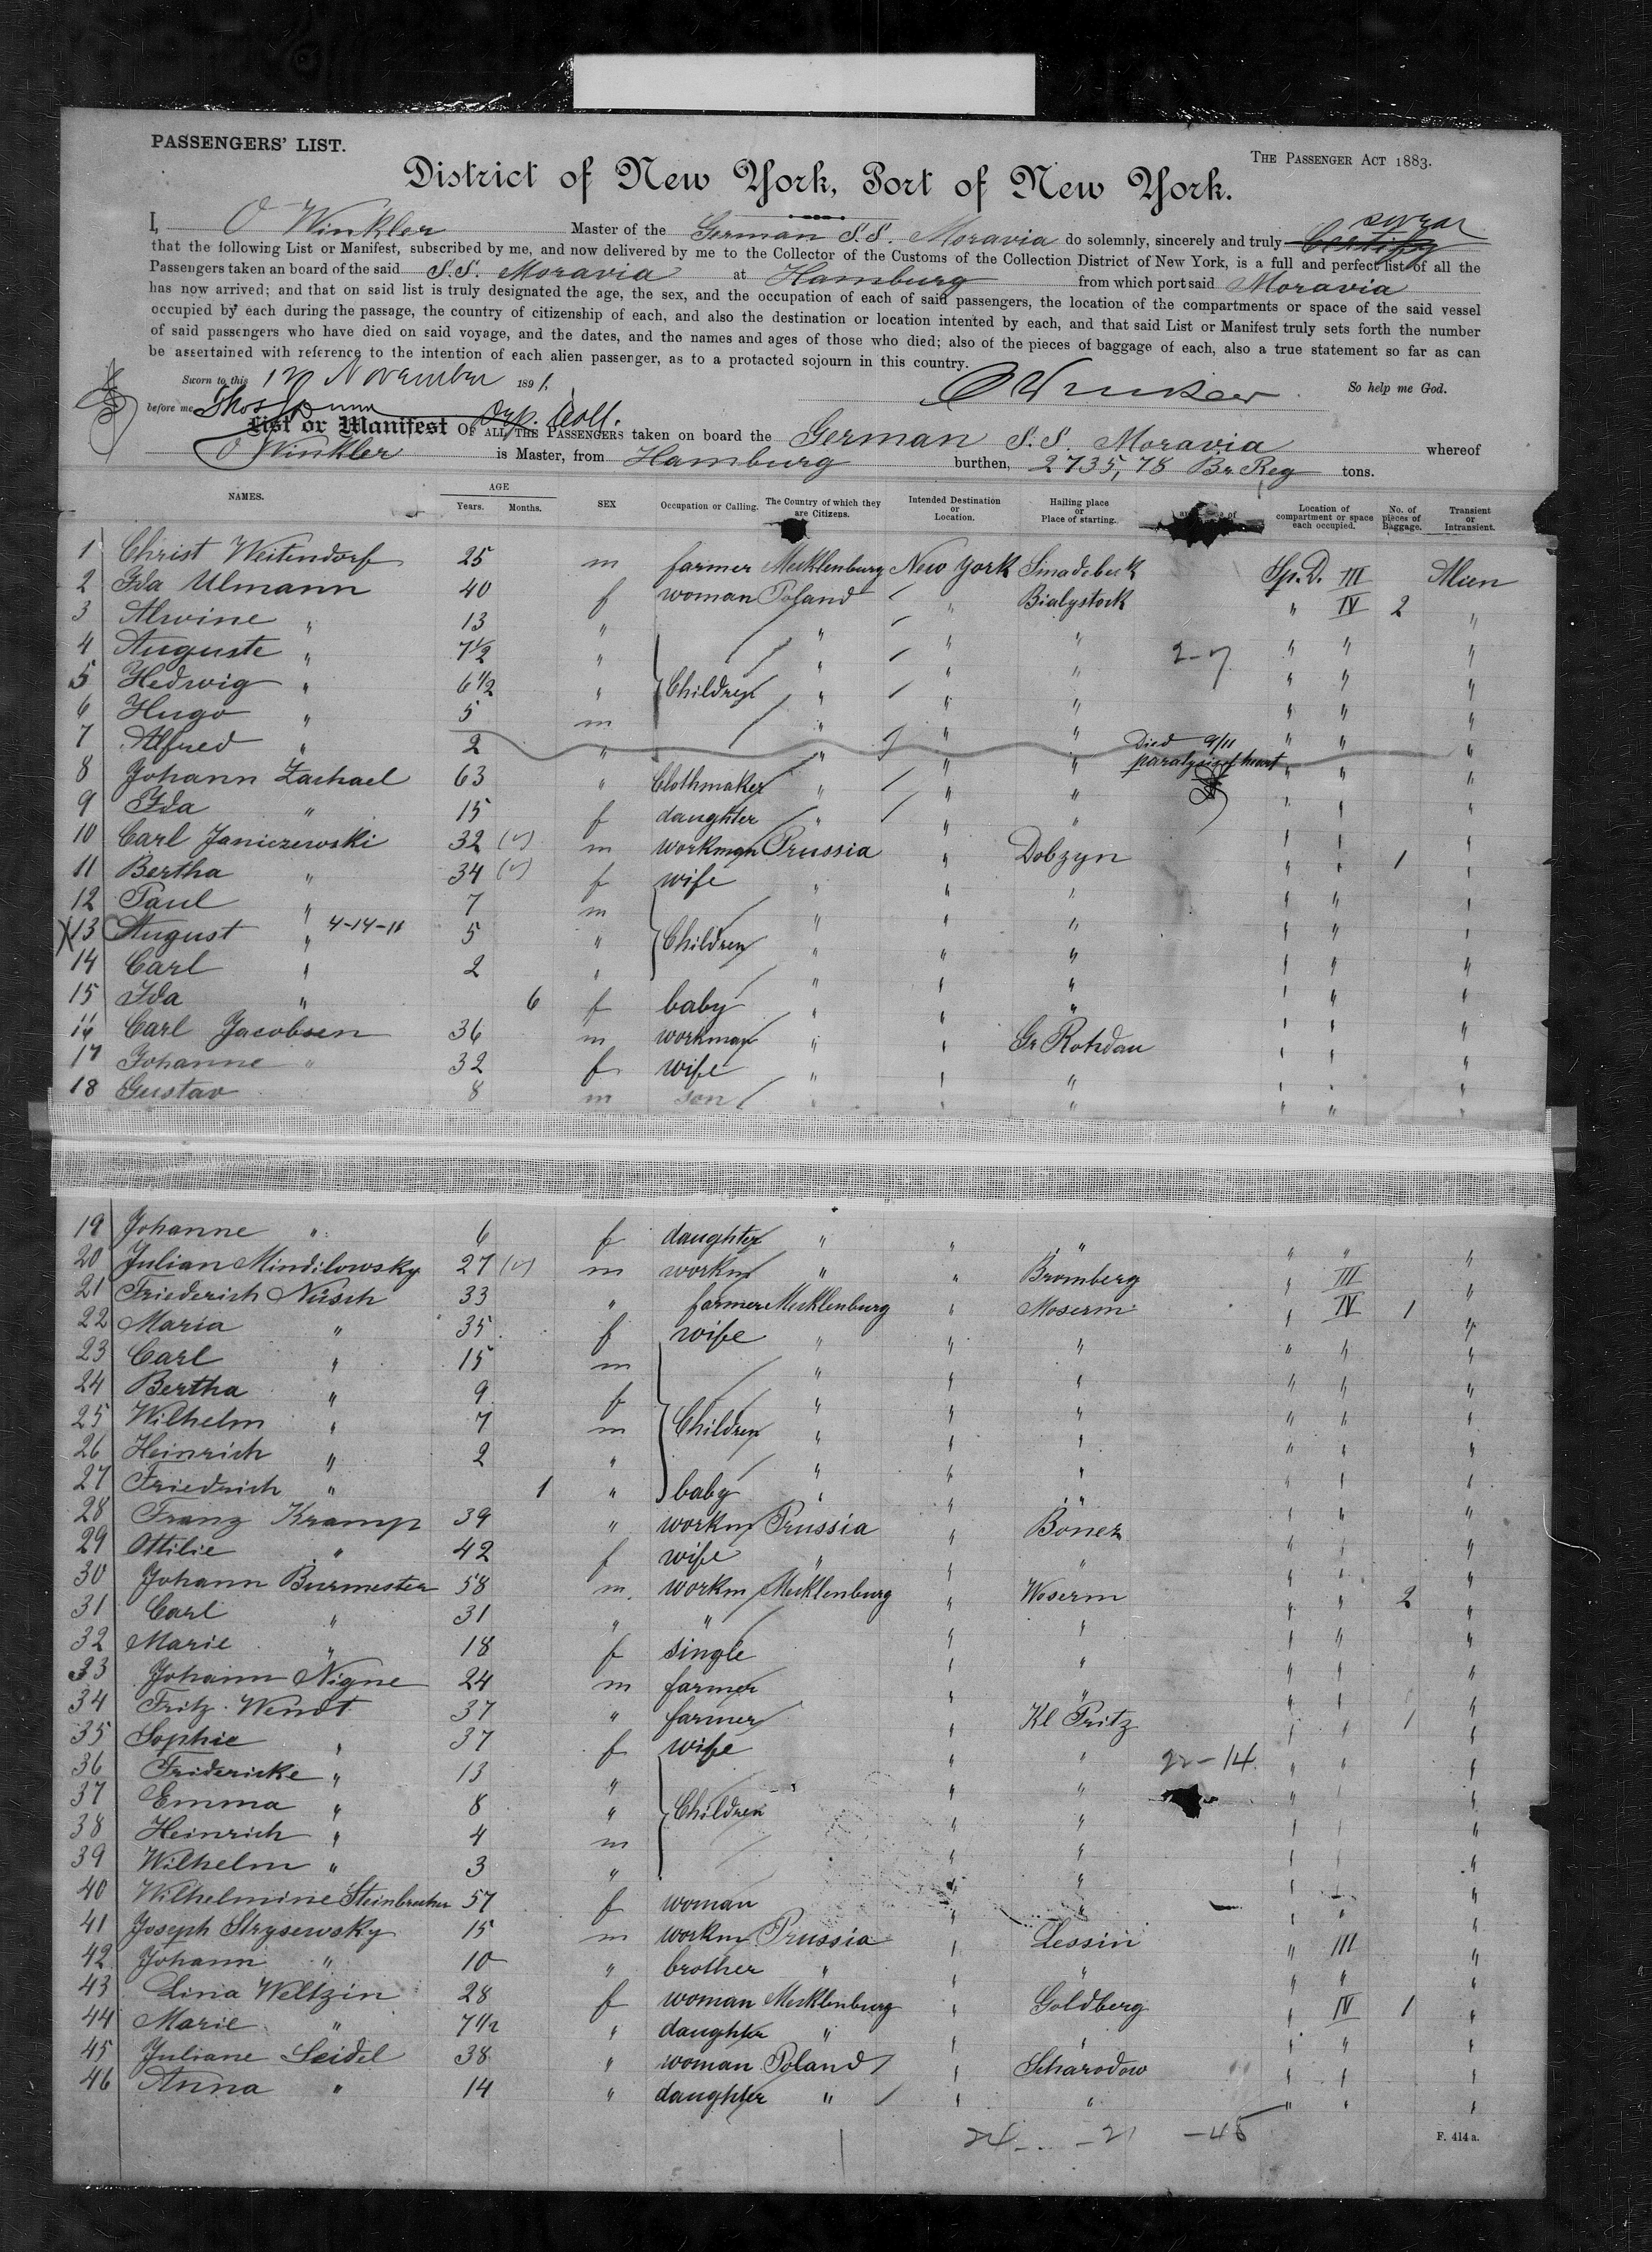 PASSENGERS' LIST.
THE PASSENGER ACT 1883.
District of New York, Port of New York.
I, O Winkler Master of the German S.S. Moravia do solemnly, sincerely and truly Certify swear
that the following List or Manifest, subscribed by me, and now delivered by me to the Collector of the Customs of the Collection District of New York, is a full and perfect list of all the
Passengers taken an board of the said S.S. Moravia at Hamburg from which port said Moravia
has now arrived; and that on said list is truly designated the age, the sex, and the occupation of each of said passengers, the location of the compartments or space of the said vessel
occupied by each during the passage, the country of citizenship of each, and also the destination or location intented by each, and that said List or Manifest truly sets forth the number
of said passengers who have died on said voyage, and the dates, and the names and ages of those who died; also of the pieces of baggage of each, also a true statement so far as can
be assertained with reference to the intention of each alien passenger, as to a protacted sojourn in this country.
Sworn to this 12 November 1891. O Winkler So help me God.
before me Thos Dunn Dep. Coll.
List or Manifest OF ALL THE PASSENGERS taken on board the German S.S. Moravia whereof
O Winkler is Master, from Hamburg burthen, 2735,78 Br Reg tons.
NAMES. AGE Years. Months. SEX Occupation or Calling. The Country of which they are Citizens. Intended Destination or Location. Hailing place or Place of starting. of Location of compartment or space each occupied. No. of pieces of Baggage. Transient or Intransient.
1 Christ Weitendorf 25 m farmer Mecklenburg New York Smadebeck Sp. D. III Alien
2 Ida Ulmann 40 f woman Poland " Bialystock " IV 2 "
3 Alwine " 13 " " " " " " "
4 Auguste " 7 1/2 " " " " 2-7 " " "
5 Hedwig " 6 1/2 " Children " " " " " "
6 Hugo " 5 m " " " " " "
7 Alfred " 2 " " " " Died 9/11 paralysis of heart " " "
8 Johann Zachael 63 " Clothmaker " " " " " "
9 Ida " 15 f daughter " " " " " "
10 Carl Janiczewski 32 (v) m workman Prussia " Dobzyn " " 1 "
11 Bertha " 34 (v) f wife " " " " " "
12 Paul " 7 m " " " " " "
X 13 August " 4-14-11 5 " Children " " " " " "
14 Carl " 2 " " " " " " "
15 Ida " 6 f baby " " " " " "
16 Carl Jacobsen 36 m workman " " Gr Rohdau " " "
17 Johanne " 32 f wife " " " " " "
18 Gustav 8 m son " " " " " "
19 Johanne " 6 f daughter " " " " " "
20 Julian Mindilowsky 27 (v) m workm " " Bromberg " III "
21 Friederich Nüsch 33 " farmer Mecklenburg " Moserm " IV 1 "
22 Maria " 35 f wife " " " " " "
23 Carl " 15 m " " " " " "
24 Bertha " 9 f " " " " " "
25 Wilhelm " 7 m Children " " " " " "
26 Heinrich " 2 " " " " " " "
27 Friedrich " 1 " baby " " " " " "
28 Franz Kramp 39 " workm Prussia " Bönez " " "
29 Ottilie " 42 f wife " " " " " "
30 Johann Burmester 58 m workm Mecklenburg " Woserm " " 2 "
31 Carl " 31 " " " " " " "
32 Marie " 18 f single " " " " "
33 Johann Nigne 24 m farmer " " " " "
34 Fritz Wendt 37 " farmer " Kl Pritz " " 1 "
35 Sophie " 37 f wife " " 22-14 " " "
36 Fridericke " 13 " " " " " "
37 Emma " 8 " Children " " " " "
38 Heinrich " 4 m " " " " "
39 Wilhelm " 3 " " " " " "
40 Wilhelmine Steinbrecher 57 f woman " " " " "
41 Joseph Strysewsky 15 m workm Prussia " Lessin " III "
42 Johann " 10 " brother " " " " " "
43 Lina Weltzin 28 f woman Mecklenburg " Goldberg " IV 1 "
44 Marie " 7 1/2 " daughter " " " " " "
45 Juliane Seidel 38 " woman Poland " Scharodow " " "
46 Anna " 14 " daughter " " " " " "
24 - 21 - 45
F. 414 a.